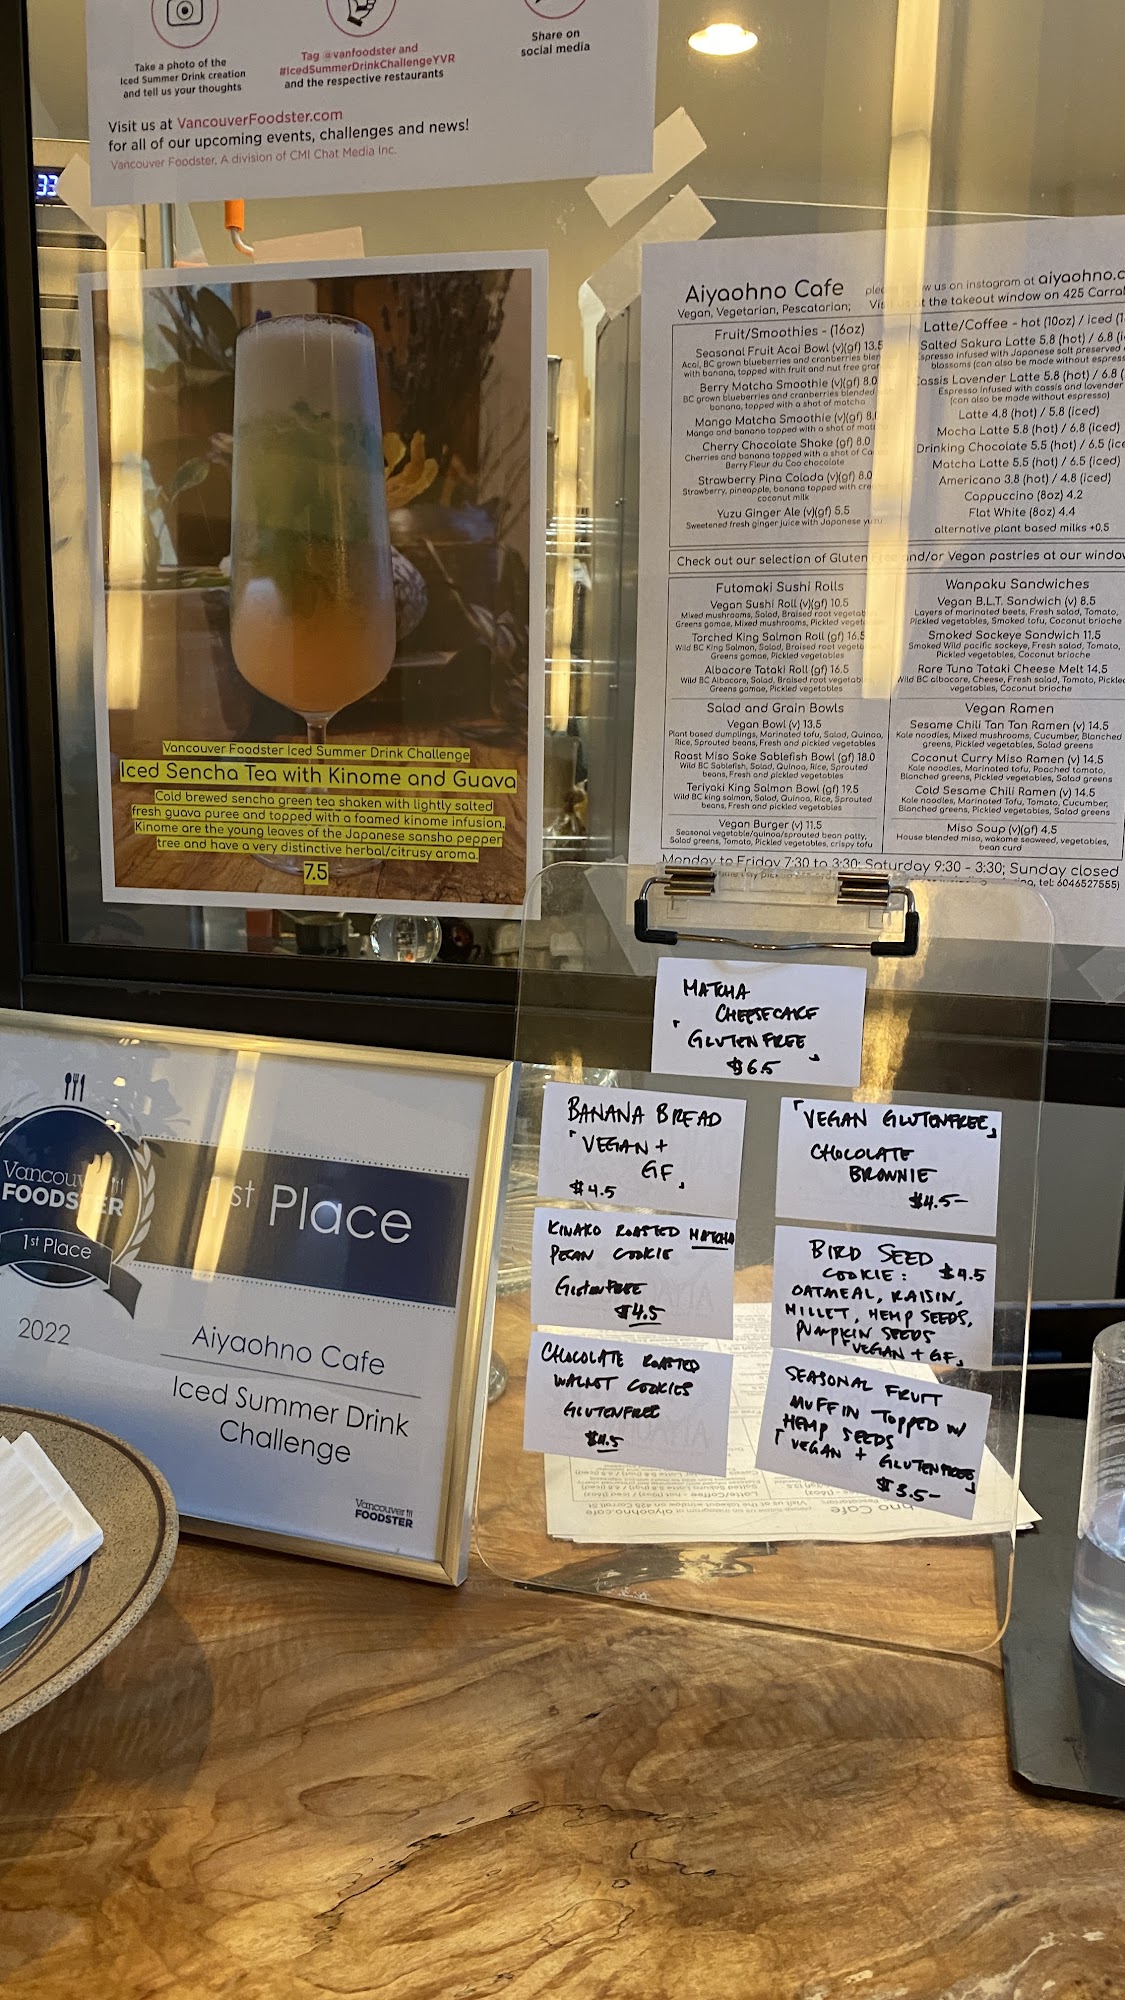 Take a photo of the
Iced Summer Drink creation
and tell us your thoughts
Tag @vanfoodster and
#IcedSummerDrinkChallengeYVR
and the respective restaurants
Share on
social media
Visit us at VancouverFoodster.com
for all of our upcoming events, challenges and news!
Vancouver Foodster, A division of CMI Chat Media Inc.
33
Vancouver Foodster Iced Summer Drink Challenge
Iced Sencha Tea with Kinome and Guava
Cold brewed sencha green tea shaken with lightly salted
fresh guava puree and topped with a foamed kinome infusion.
Kinome are the young leaves of the Japanese sansho pepper
tree and have a very distinctive herbal/citrusy aroma.
7.5
Aiyaohno Cafe
us on instagram at aiyaohno.c
Vegan, Vegetarian, Pescatarian;
at the takeout window on 425 Carral
Fruit/Smoothies - (16oz)
Seasonal Fruit Acai Bowl (v)(gf) 13.5
Acai, BC grown blueberries and cranberries blen
with banana, topped with fruit and nut free gra
Berry Matcha Smoothie (v)(gf) 8.0
BC grown blueberries and cranberries blended
banana, topped with a shot of matcha
Mango Matcha Smoothie (v)(gf) 8.
Mango and banana topped with a shot of mat
Cherry Chocolate Shake (gf) 8.0
Cherries and banana topped with a shot of Ca
Berry Fleur du Cao chocolate
Strawberry Pina Colada (v)(gf) 8.0
Strawberry, pineapple, banana topped with cre
coconut milk
Yuzu Ginger Ale (v)(gf) 5.5
Sweetened fresh ginger juice with Japanese yuzu
Latte/Coffee - hot (10oz) / iced (1
Salted Sakura Latte 5.8 (hot) / 6.8 (i
Espresso infused with Japanese salt preserved
blossoms (can also be made without espress
Cassis Lavender Latte 5.8 (hot) / 6.8 (
Espresso Infused with cassis and lavender
(can also be made without espresso)
Latte 4.8 (hot) / 5.8 (iced)
Mocha Latte 5.8 (hot) / 6.8 (iced)
Drinking Chocolate 5.5 (hot) / 6.5 (ice
Matcha Latte 5.5 (hot) / 6.5 (iced)
Americano 3.8 (hot) / 4.8 (iced)
Cappuccino (8oz) 4.2
Flat White (8oz) 4.4
alternative plant based milks +0.5
Check out our selection of Gluten Free and/or Vegan pastries at our window
Futomaki Sushi Rolls
Vegan Sushi Roll (v)(gf) 10.5
Mixed mushrooms, Salad, Braised root vegetab
Greens gomae, Mixed mushrooms, Pickled veget
Torched King Salmon Roll (gf) 16.5
Wild BC King Salmon, Salad, Braised root vegeta
Greens gomae, Pickled vegetables
Albacore Tataki Roll (gf) 16.5
Wild BC Albacore, Salad, Braised root vegetab
Greens gomae, Pickled vegetables
Wanpaku Sandwiches
Vegan B.L.T. Sandwich (v) 8.5
Layers of marinated beets, Fresh salad, Tomato,
Pickled vegetables, Smoked tofu, Coconut brioche
Smoked Sockeye Sandwich 11.5
Smoked Wild pacific sockeye, Fresh salad, Tomato,
Pickled vegetables, Coconut brioche
Rare Tuna Tataki Cheese Melt 14.5
Wild BC albacore, Cheese, Fresh salad, Tomato, Pickled
vegetables, Coconut brioche
Salad and Grain Bowls
Vegan Bowl (v) 13.5
Plant based dumplings, Marinated tofu, Salad, Quinoa,
Rice, Sprouted beans, Fresh and pickled vegetables
Roast Miso Sake Sablefish Bowl (gf) 18.0
Wild BC Sablefish, Salad, Quinoa, Rice, Sprouted
beans, Fresh and pickled vegetables
Teriyaki King Salmon Bowl (gf) 19.5
Wild BC king salmon, Salad, Quinoa, Rice, Sprouted
beans, Fresh and pickled vegetables
Vegan Burger (v) 11.5
Seasonal vegetable/quinoa/sprouted bean patty,
Salad greens, Tomato, Pickled vegetables, crispy tofu
Vegan Ramen
Sesame Chili Tan Tan Ramen (v) 14.5
Kale noodles, Mixed mushrooms, Cucumber, Blanched
greens, Pickled vegetables, Salad greens
Coconut Curry Miso Ramen (v) 14.5
Kale noodles, Marinated tofu, Poached tomato,
Blanched greens, Pickled vegetables, Salad greens
Cold Sesame Chili Ramen (v) 14.5
Kale noodles, Marinated Tofu, Tomato, Cucumber,
Blanched greens, Pickled vegetables, Salad greens
Miso Soup (v)(gf) 4.5
House blended miso, wakame seaweed, vegetables,
bean curd
Monday to Friday 7:30 to 3:30; Saturday 9:30 - 3:30; Sunday closed
tel: 6046527555)
MATCHA
CHEESECAKE
「GLUTENFREE」
$6.5
BANANA BREAD
「VEGAN +
GF」
$4.5
「VEGAN GLUTENFREE」
CHOCOLATE
BROWNIE
$4.5-
KINAKO ROASTED MATCHA
PECAN COOKIE
GlutenFREE
$4.5
BIRD SEED
COOKIE: $4.5
OATMEAL, RAISIN,
MILLET, HEMP SEEDS,
PUMPKIN SEEDS
「VEGAN + GF」
CHOCOLATE ROASTED
WALNUT COOKIES
GLUTENFREE
$4.5
SEASONAL FRUIT
MUFFIN TOPPED W/
HEMP SEEDS
「VEGAN + GLUTENFREE」
$3.5-
Vancouver
FOODSTER
1st Place
2022
1st Place
Aiyaohno Cafe
Iced Summer Drink
Challenge
Vancouver
FOODSTER